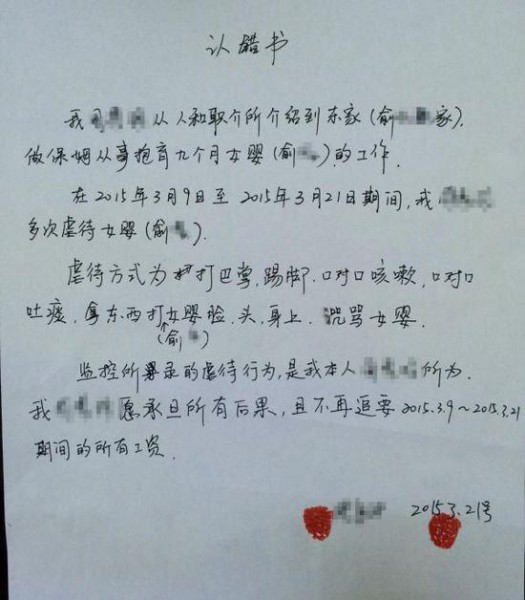 认错书
我 从人和职介所介绍到东家(俞 家).
做保姆从事抱育九个月女婴(俞 )的工作.
在2015年3月9日至2015年3月21日期间,我
多次虐待女婴(俞 ).
虐待方式为打巴掌,踢脚.口对口咳嗽,口对口
吐痰,拿东西打女婴脸、头、身上.咒骂女婴.
(俞 )
监控所录的虐待行为,是我本人 所为.
我 愿承旦所有后果,且不再追要2015.3.9~2015.3.21
期间的所有工资.
2015.3.21号